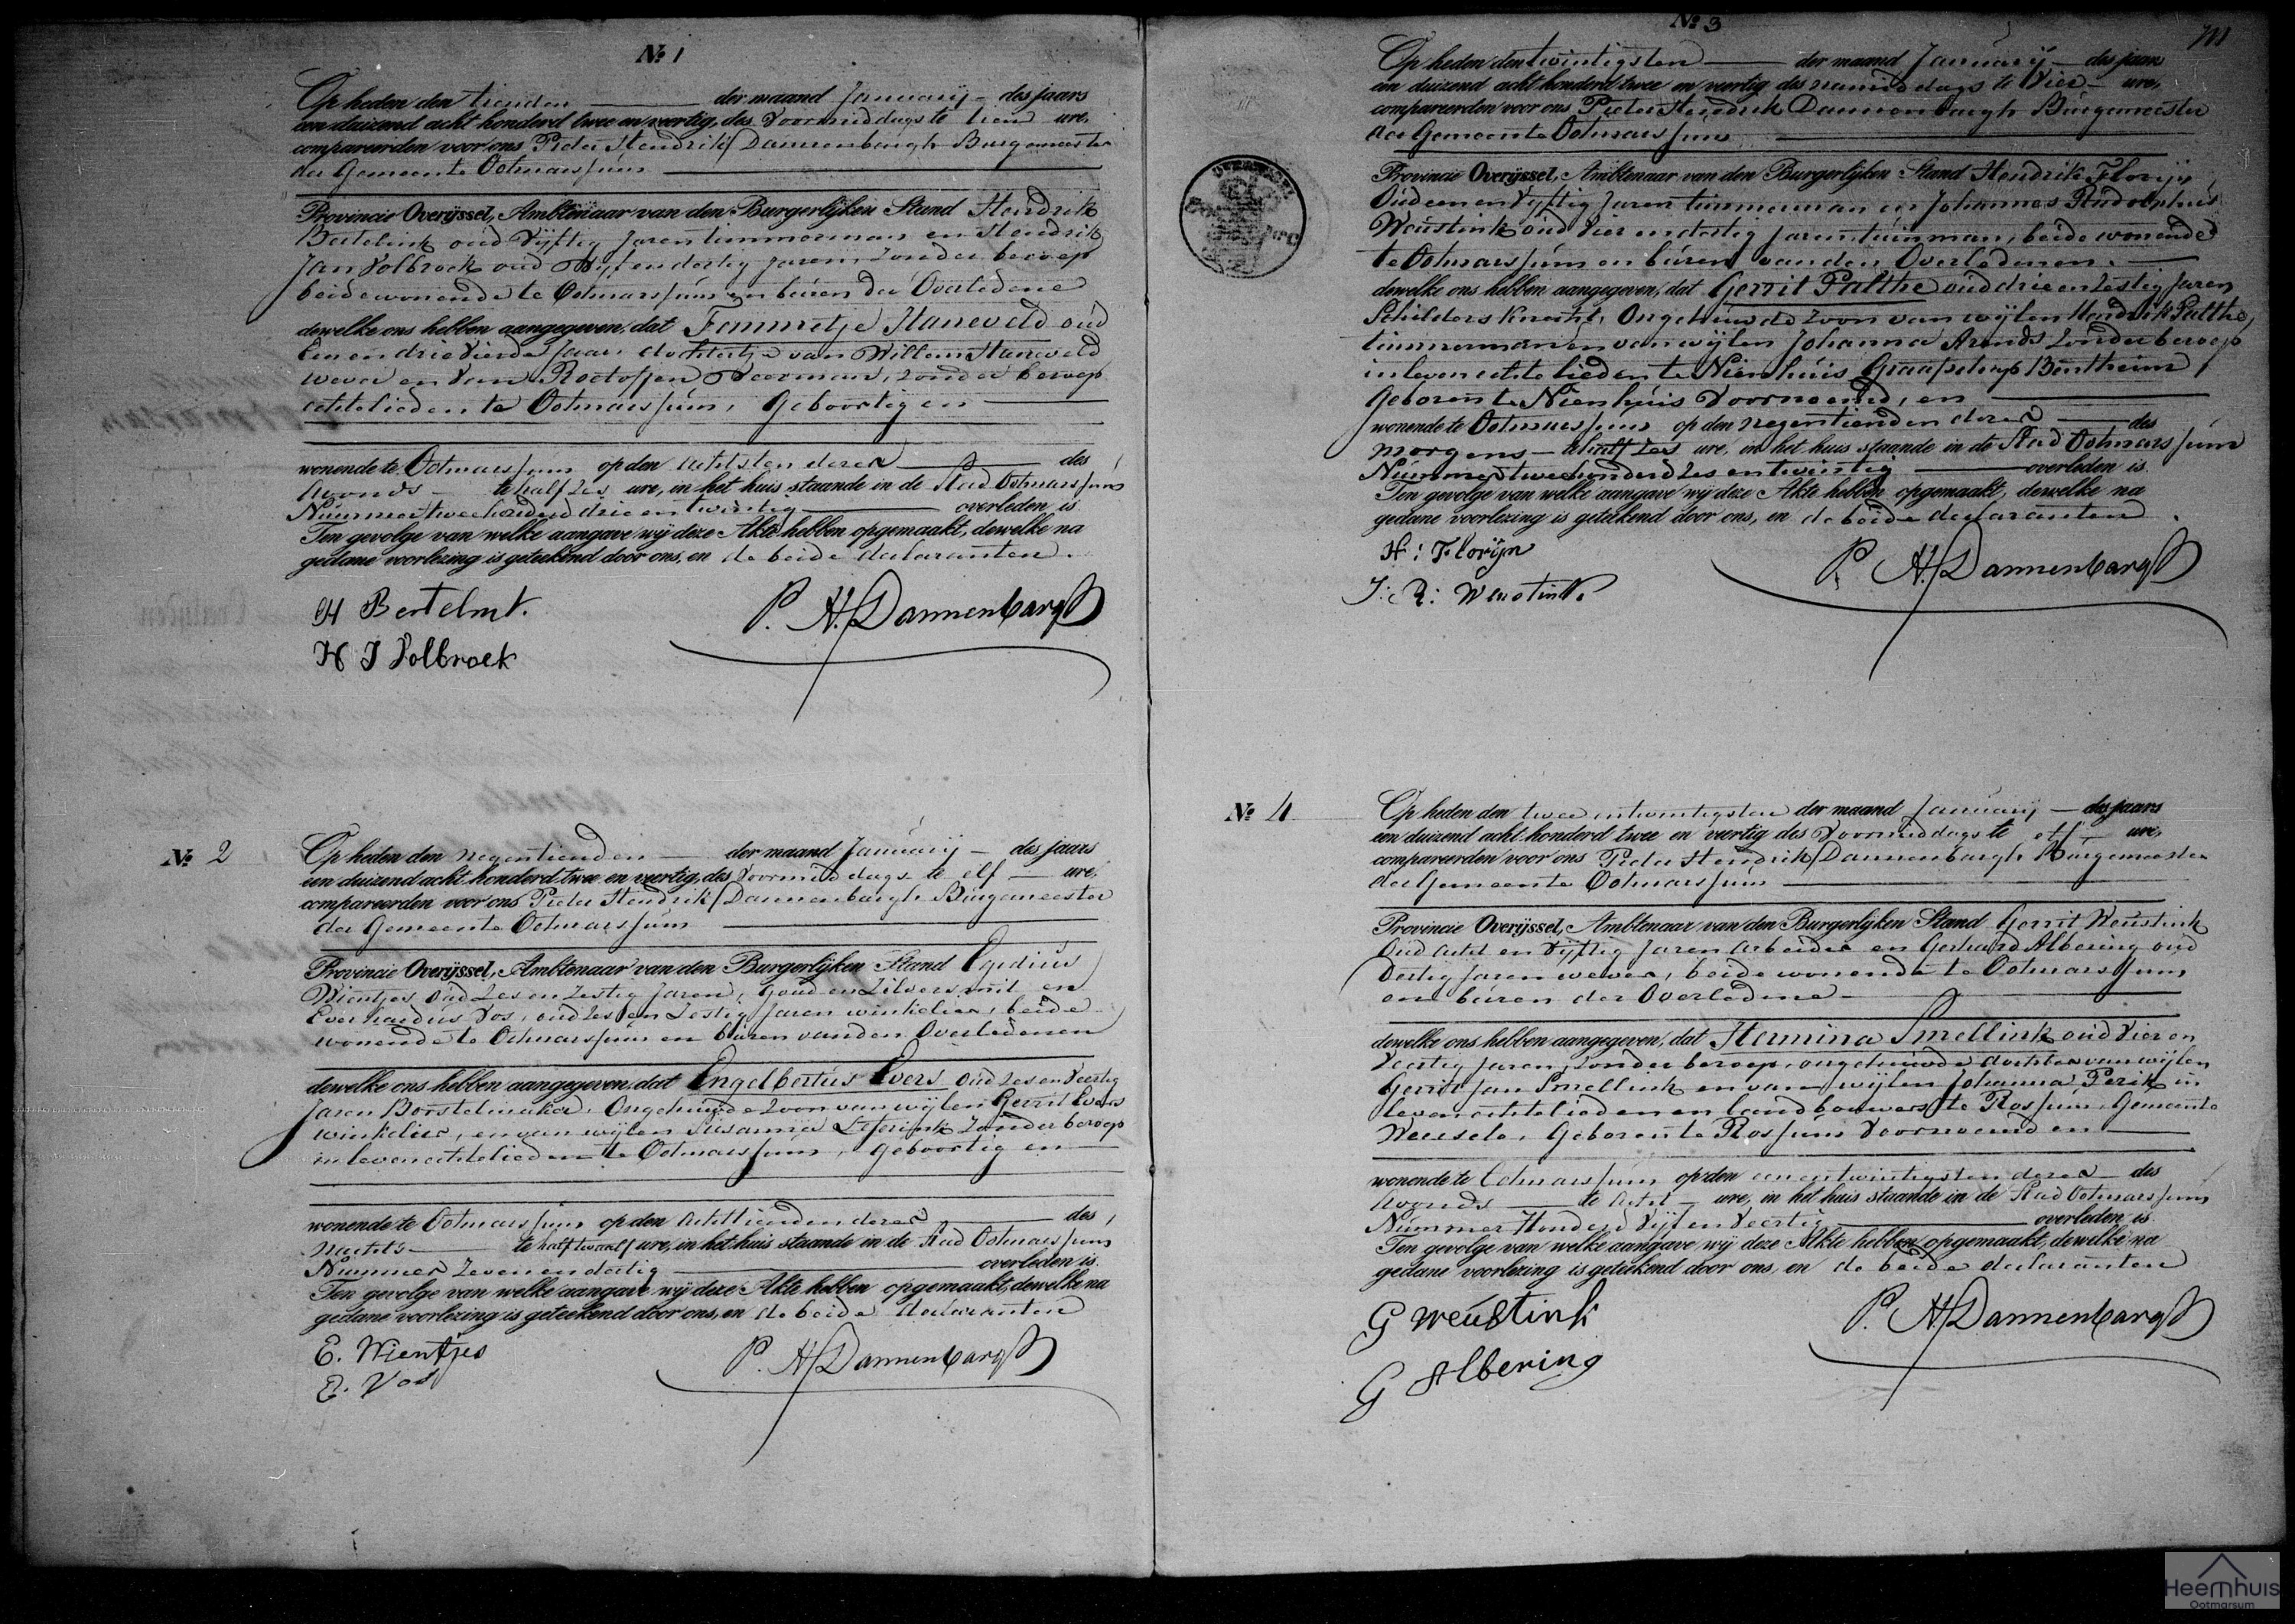 Nº 1
Op heden den tienden der maand Januarij des jaars
een duizend acht honderd twee en veertig, des Voormiddags te tien ure,
compareerden voor ons Pieter Hendrik Dannenbargh Burgemeester
der Gemeente Ootmarssum
Provincie Overijssel, Ambtenaar van den Burgerlijken Stand Hendrik
Bertelink oud Vijftig Jaren timmerman en Hendrik
Jan Volbroek oud Vijfendertig Jaren Zonder beroep
beide wonende te Ootmarssum en buren der Overledene
dewelke ons hebben aangegeven, dat Femmetje Haneveld oud
Een en drie Vierde Jaar, dochtertje van Willem Haneveld
wever en van Veerman, zonder beroep
echtelieden te Ootmarssum, Geboortig en
wonende te Ootmarssum op den Achtsten dezer des
Avonds te half Zes ure, in het huis staande in de Stad Ootmarssum
Nummer twee honderd drie en twintig overleden is.
Ten gevolge van welke aangave wij deze Akte hebben opgemaakt, dewelke na
gedane voorlezing is geteekend door ons, en de beide declaranten.
H Bertelint. P. H. Dannenbargh
H J Volbroek
Nº 2
Op heden den negentienden der maand Januarij des jaars
een duizend acht honderd twee en veertig, des Voormiddags te elf ure,
compareerden voor ons Pieter Hendrik Dannenbargh Burgemeester
der Gemeente Ootmarssum
Provincie Overijssel, Ambtenaar van den Burgerlijken Stand Egidius
Wientjes oud Zes en Zestig Jaren, Goud en Zilversmit en
Everhardus Vos, oud Zes en Zestig Jaren winkelier, beide
wonende te Ootmarssum en buren van den Overledenen
dewelke ons hebben aangegeven, dat Engelbertus Evers Oud Zes en Veertig
Jaren Borstelmaker, Ongehuwde Zoon van wijlen Gerrit Evers
winkelier, en van wijlen Susanna Zonder beroep
in leven echtelieden te Ootmarssum, Geboortig en
wonende te Ootmarssum op den Achttienden dezer des
Nachts te half twaalf ure, in het huis staande in de Stad Ootmarssum
Nummer Zevenendertig overleden is.
Ten gevolge van welke aangave wij deze Akte hebben opgemaakt, dewelke na
gedane voorlezing is geteekend door ons, en de beide declaranten
E. Wientjes P. H. Dannenbargh
E. Vos
Nº 3
Op heden den twintigsten der maand Januarij des jaars
een duizend acht honderd twee en veertig des namiddags te Vier ure,
compareerden voor ons Pieter Hendrik Dannenbargh Burgemeester
der Gemeente Ootmarssum
Provincie Overijssel, Ambtenaar van den Burgerlijken Stand Hendrik Florijn
Oud een en Vijftig Jaren timmerman en Johannes Rudolphus
Weustink oud Vier en dertig Jaren tuinman, beide wonende
te Ootmarssum en buren van den Overledenen.
dewelke ons hebben aangegeven, dat Gerrit Palthe oud drie en Zestig Jaren
Schilders Knecht, Ongehuwde Zoon van wijlen Hendrik Palthe,
timmerman en van wijlen Johanna Arends Zonder beroep
in leven echtelieden te Nienhuis Graafschap Bentheim,
Geboren te Nienhuis Voornoemd, en
wonende te Ootmarssum op den negentienden dezer des
morgens te half Zes ure, in het huis staande in de Stad Ootmarssum
Nummer twee honderd Zes en twintig overleden is.
Ten gevolge van welke aangave wij deze Akte hebben opgemaakt, dewelke na
gedane voorlezing is geteekend door ons, en de beide declaranten.
H: Florijn P. H. Dannenbargh
J: R: Weustink
Nº 4
Op heden den twee entwintigsten der maand Januarij des jaars
een duizend acht honderd twee en veertig des Voormiddags te elf ure,
compareerden voor ons Pieter Hendrik Dannenbargh Burgemeester
der Gemeente Ootmarssum
Provincie Overijssel, Ambtenaar van den Burgerlijken Stand Gerrit Weustink
Oud Acht en Vijftig Jaren Arbeider en Gerhard Albering oud
Dertig Jaren wever, beide wonende te Ootmarssum
en buren der Overledene
dewelke ons hebben aangegeven, dat Hermina Smellink oud Vier en
Veertig Jaren, Zonder beroep, ongehuwde dochter van wijlen
Gerrit Jan Smellink en van wijlen Johanna Perik in
leven echtelieden en landbouwers te Rossum Gemeente
Weerselo, Geboren te Rossum Voornoemd en
wonende te Ootmarssum op den een entwintigsten dezer des
Avonds te Acht ure, in het huis staande in de Stad Ootmarssum
Nummer Honderd Vijf en Veertig overleden is.
Ten gevolge van welke aangave wij deze Akte hebben opgemaakt, dewelke na
gedane voorlezing is geteekend door ons, en de beide declaranten
G Weustink P. H. Dannenbargh
G Albering
Heemhuis
Ootmarsum